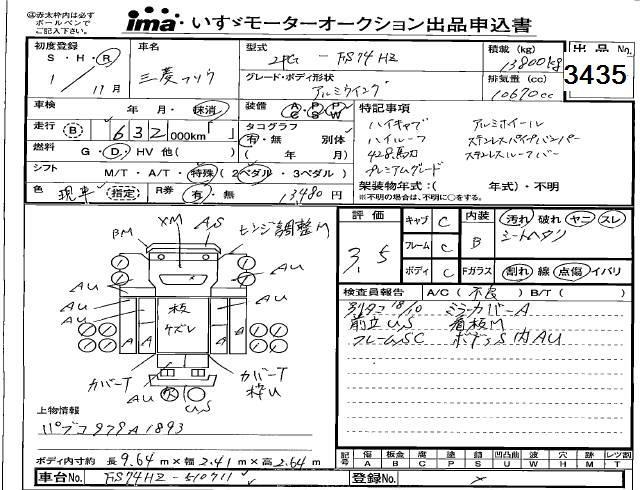 ㊟赤太枠内は必ず
ボールペンで
ご記入下さい。
ima いすゞモーターオークション出品申込書
初度登録 車名 型式 積載 (kg) 出品No.
S・H・R 三菱フソウ 2PG - FS74HZ 13800kg 3435
1/11月 グレード・ボディ形状 アルミウイング 排気量 (cc) 10670cc
車検 年 月・抹消 装備 AC PS PW 特記事項
走行 B 632 000km「 」 タコグラフ 有・無 別体 ハイキャブ アルミホイール
燃料 G・D・HV 他( ) ( 年 月) ハイルーフ ステンレスパイプバンパー
428馬力 ステンレスルーフバー
シフト M/T・A/T・特殊(2ペダル・3ペダル) プレミアムグレード
色 現車 指定 R券 有・無 13,480円 架装物年式:( 年式)・不明
※不明の場合は、不明に○をする。
評価 3.5 キャブ C 内装 B 汚れ 破れ ヤニ スレ
フレーム C シートヘタリ
ボディ C Fガラス 割れ 線 点傷 イバリ
検査員報告 A/C(不良) B/T( )
別タコ 18/10 ミラーカバーA
前立US 看板M
フレームSC ボデーS内AU
BM XM AS ヒンジ調整M
AU AU
AU 板 ケズレ AU
AU
A A A A
カバーT カバーT
AU 枠U
US
上物情報
パブコ 979A1893
ボディ内寸約 長9.64m×幅2.41m×高2.64m
記号 傷A 板金B 腐C 塗P 錆S 凹凸凹曲U 波W 穴H 跡M レツ割T
車台No. FS74HZ-510711 登録No.